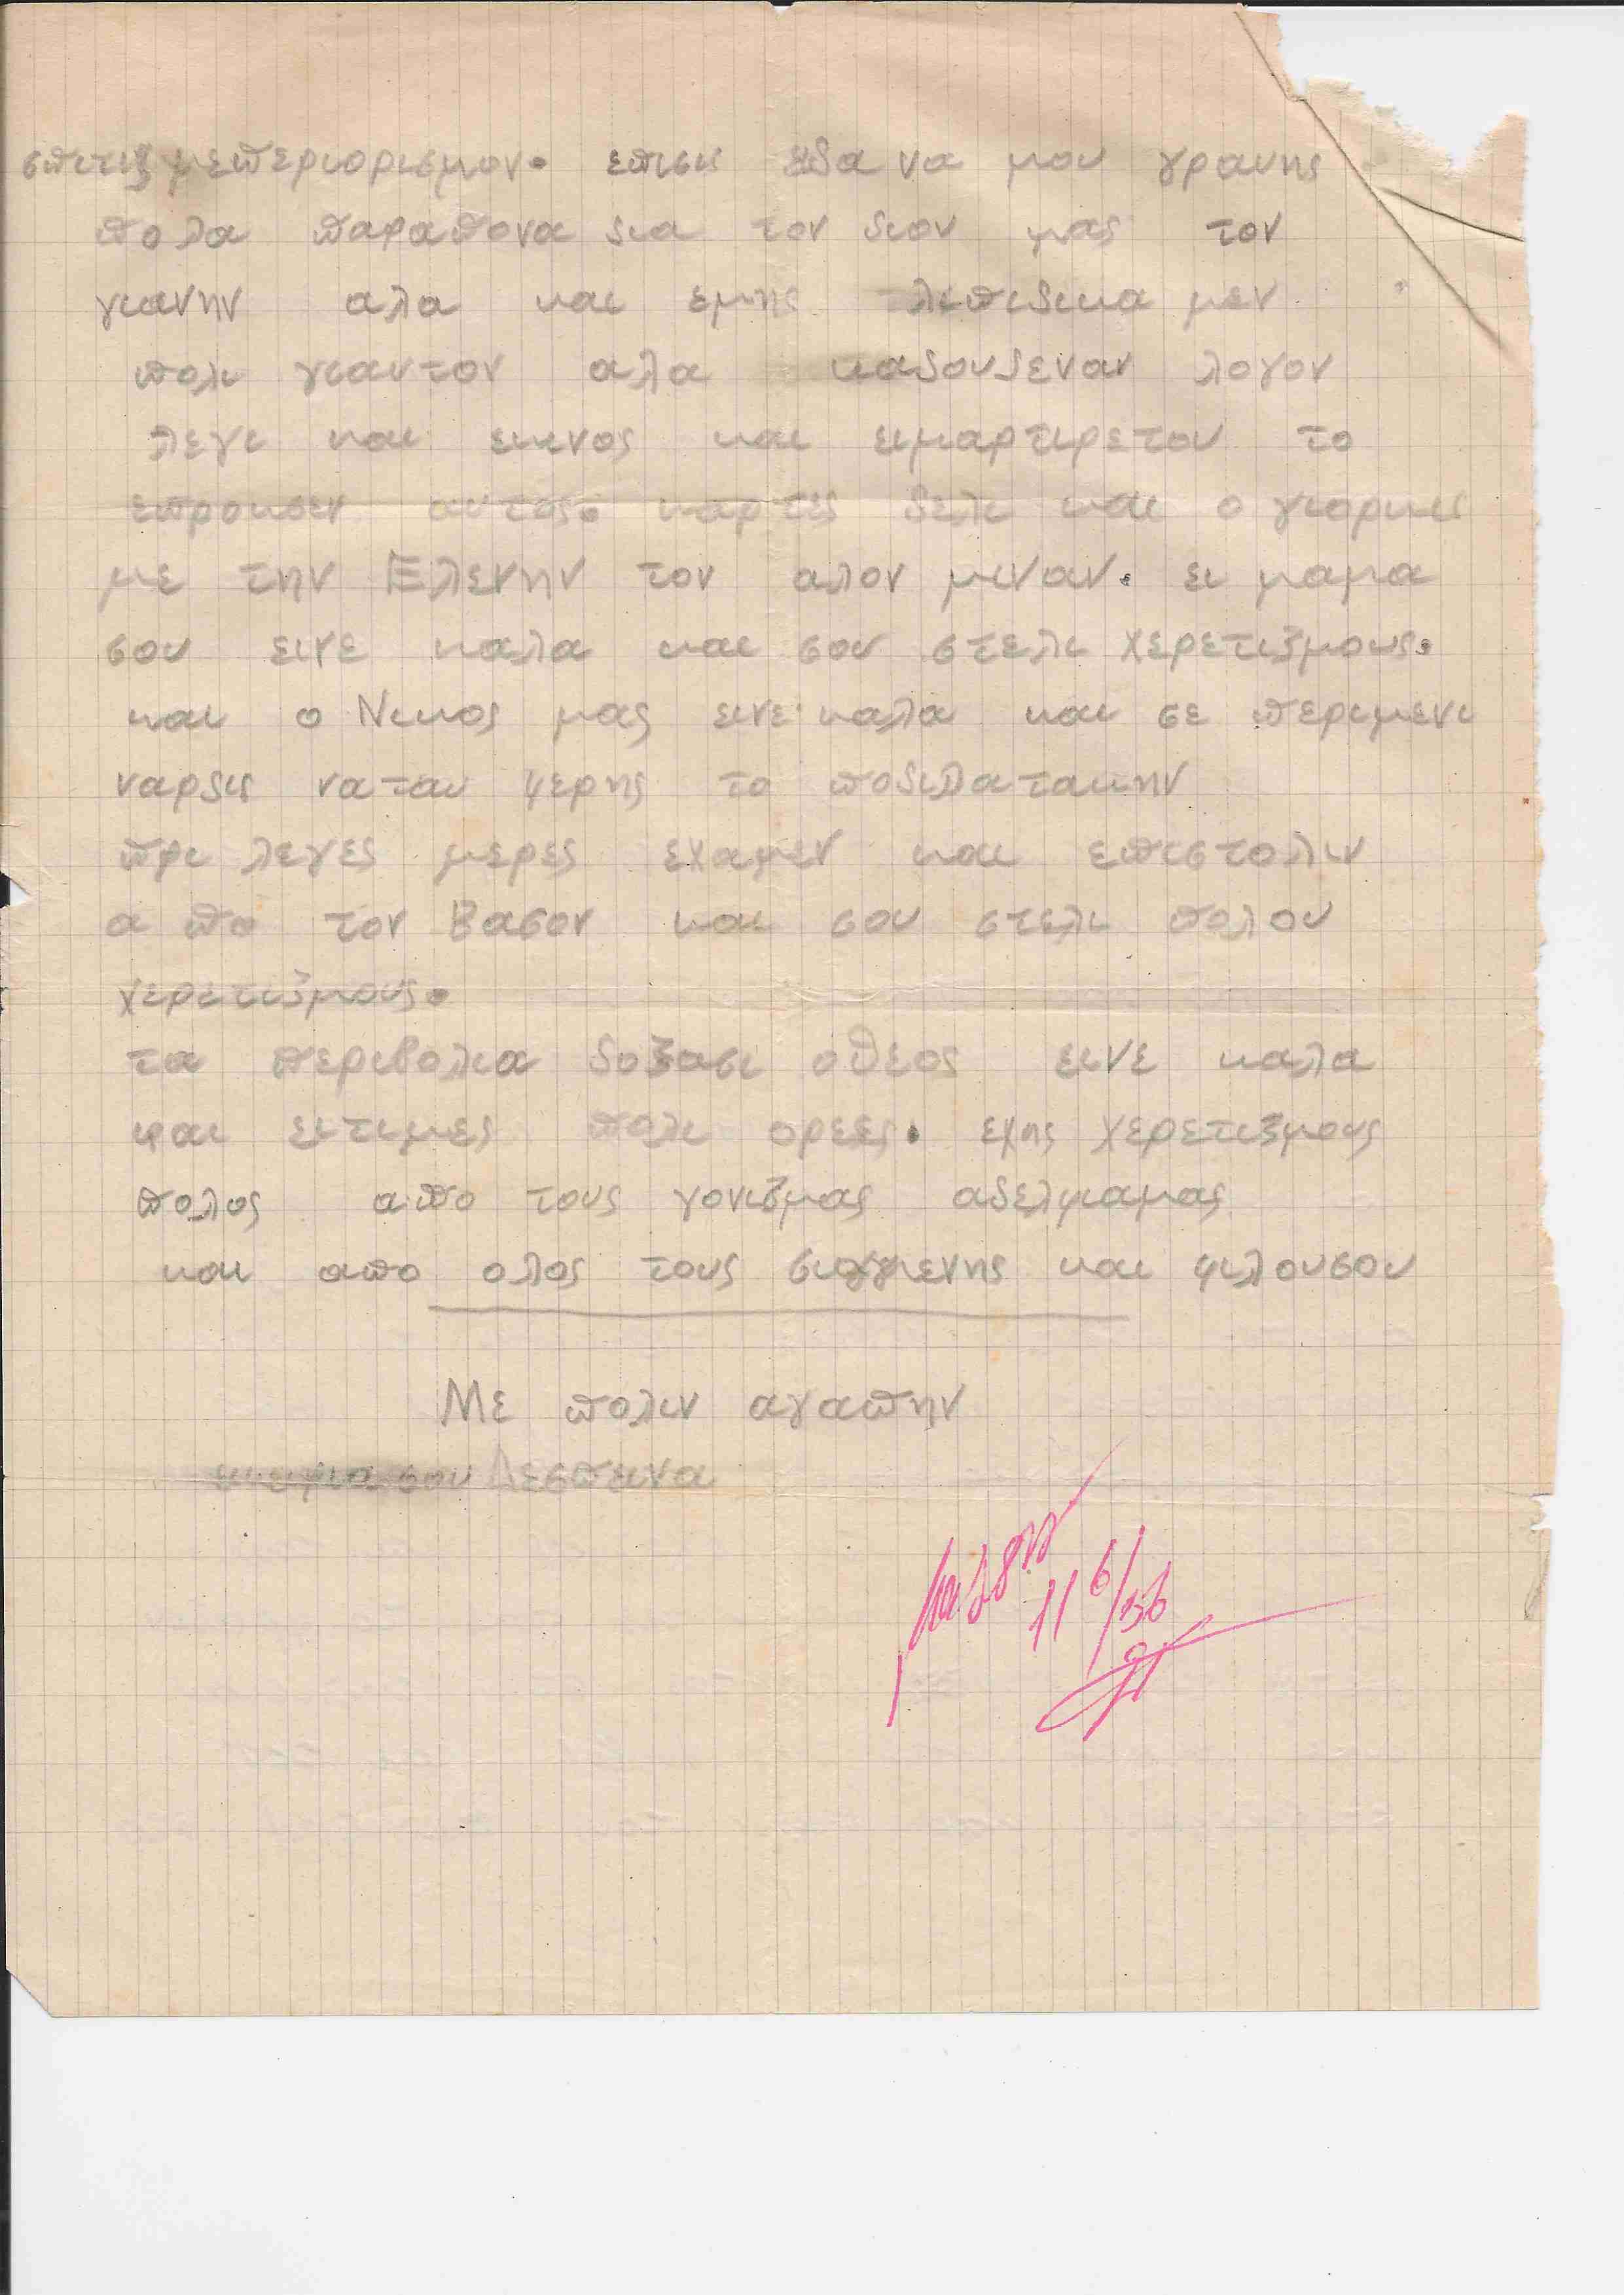 σπιτις μεπεριορισμον. επισις ιδα να μου γραυης
πολα παραπονα δια τον διον μας τον
γιανην αλα και εμης λιπιδικα μεν
πολι γιαυτον αλα καδουδεναν λογον
λεγι και εκινος και ειμαρτιρετου το
επροκσεν αυτος. καρτες δελι και ο γιορκις
με την Ελενην τον αλον μιναν. ει μαμα
σου εινε καλα και σου στελι χερετιζμους.
και ο Νικος μας εινε καλα και σε περιμενι
ναρδις νατου φερης το ποδιλατακην
πρι λεγες μερες εχαμεν και επιστολιν
απο τον Βασον και σου στελι πολου
χερετιζμους.
τα περιβολια δοξασι οθεος εινε καλα
και ειτιμες πολι ορεες. εχης χερετιζμους
πολος απο τους γονιζμας αδελφιαμας
και απο ολος τους συγγενης και φιλουσου
Με πολιν αγαπην
σου Δεσπεινα
11/6/56